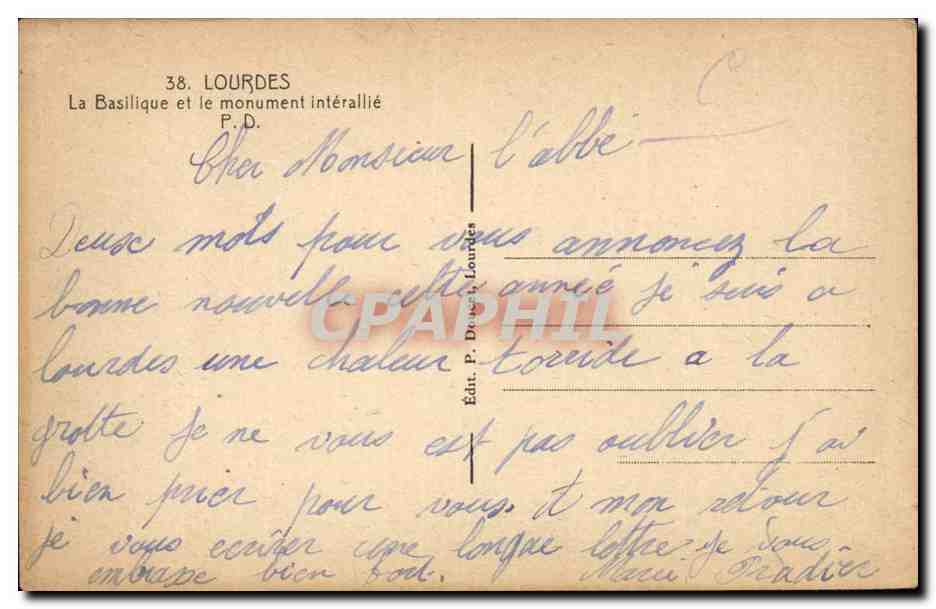 38. LOURDES
La Basilique et le monument intérallié
P. D.
Cher Monsieur l'abbé
Deuse mots pour vous annoncez la
bonne nouvelle cette année je suis a
lourdes une chaleur torride a la
grotte je ne vous est pas oublier j'ai
bien prier pour vous. t mon retour
je vous ecrirer une longue lettre. je vous
embrase bien fort. Marie Pradier
Édit. P. Doucet, Lourdes
CPAPHIL